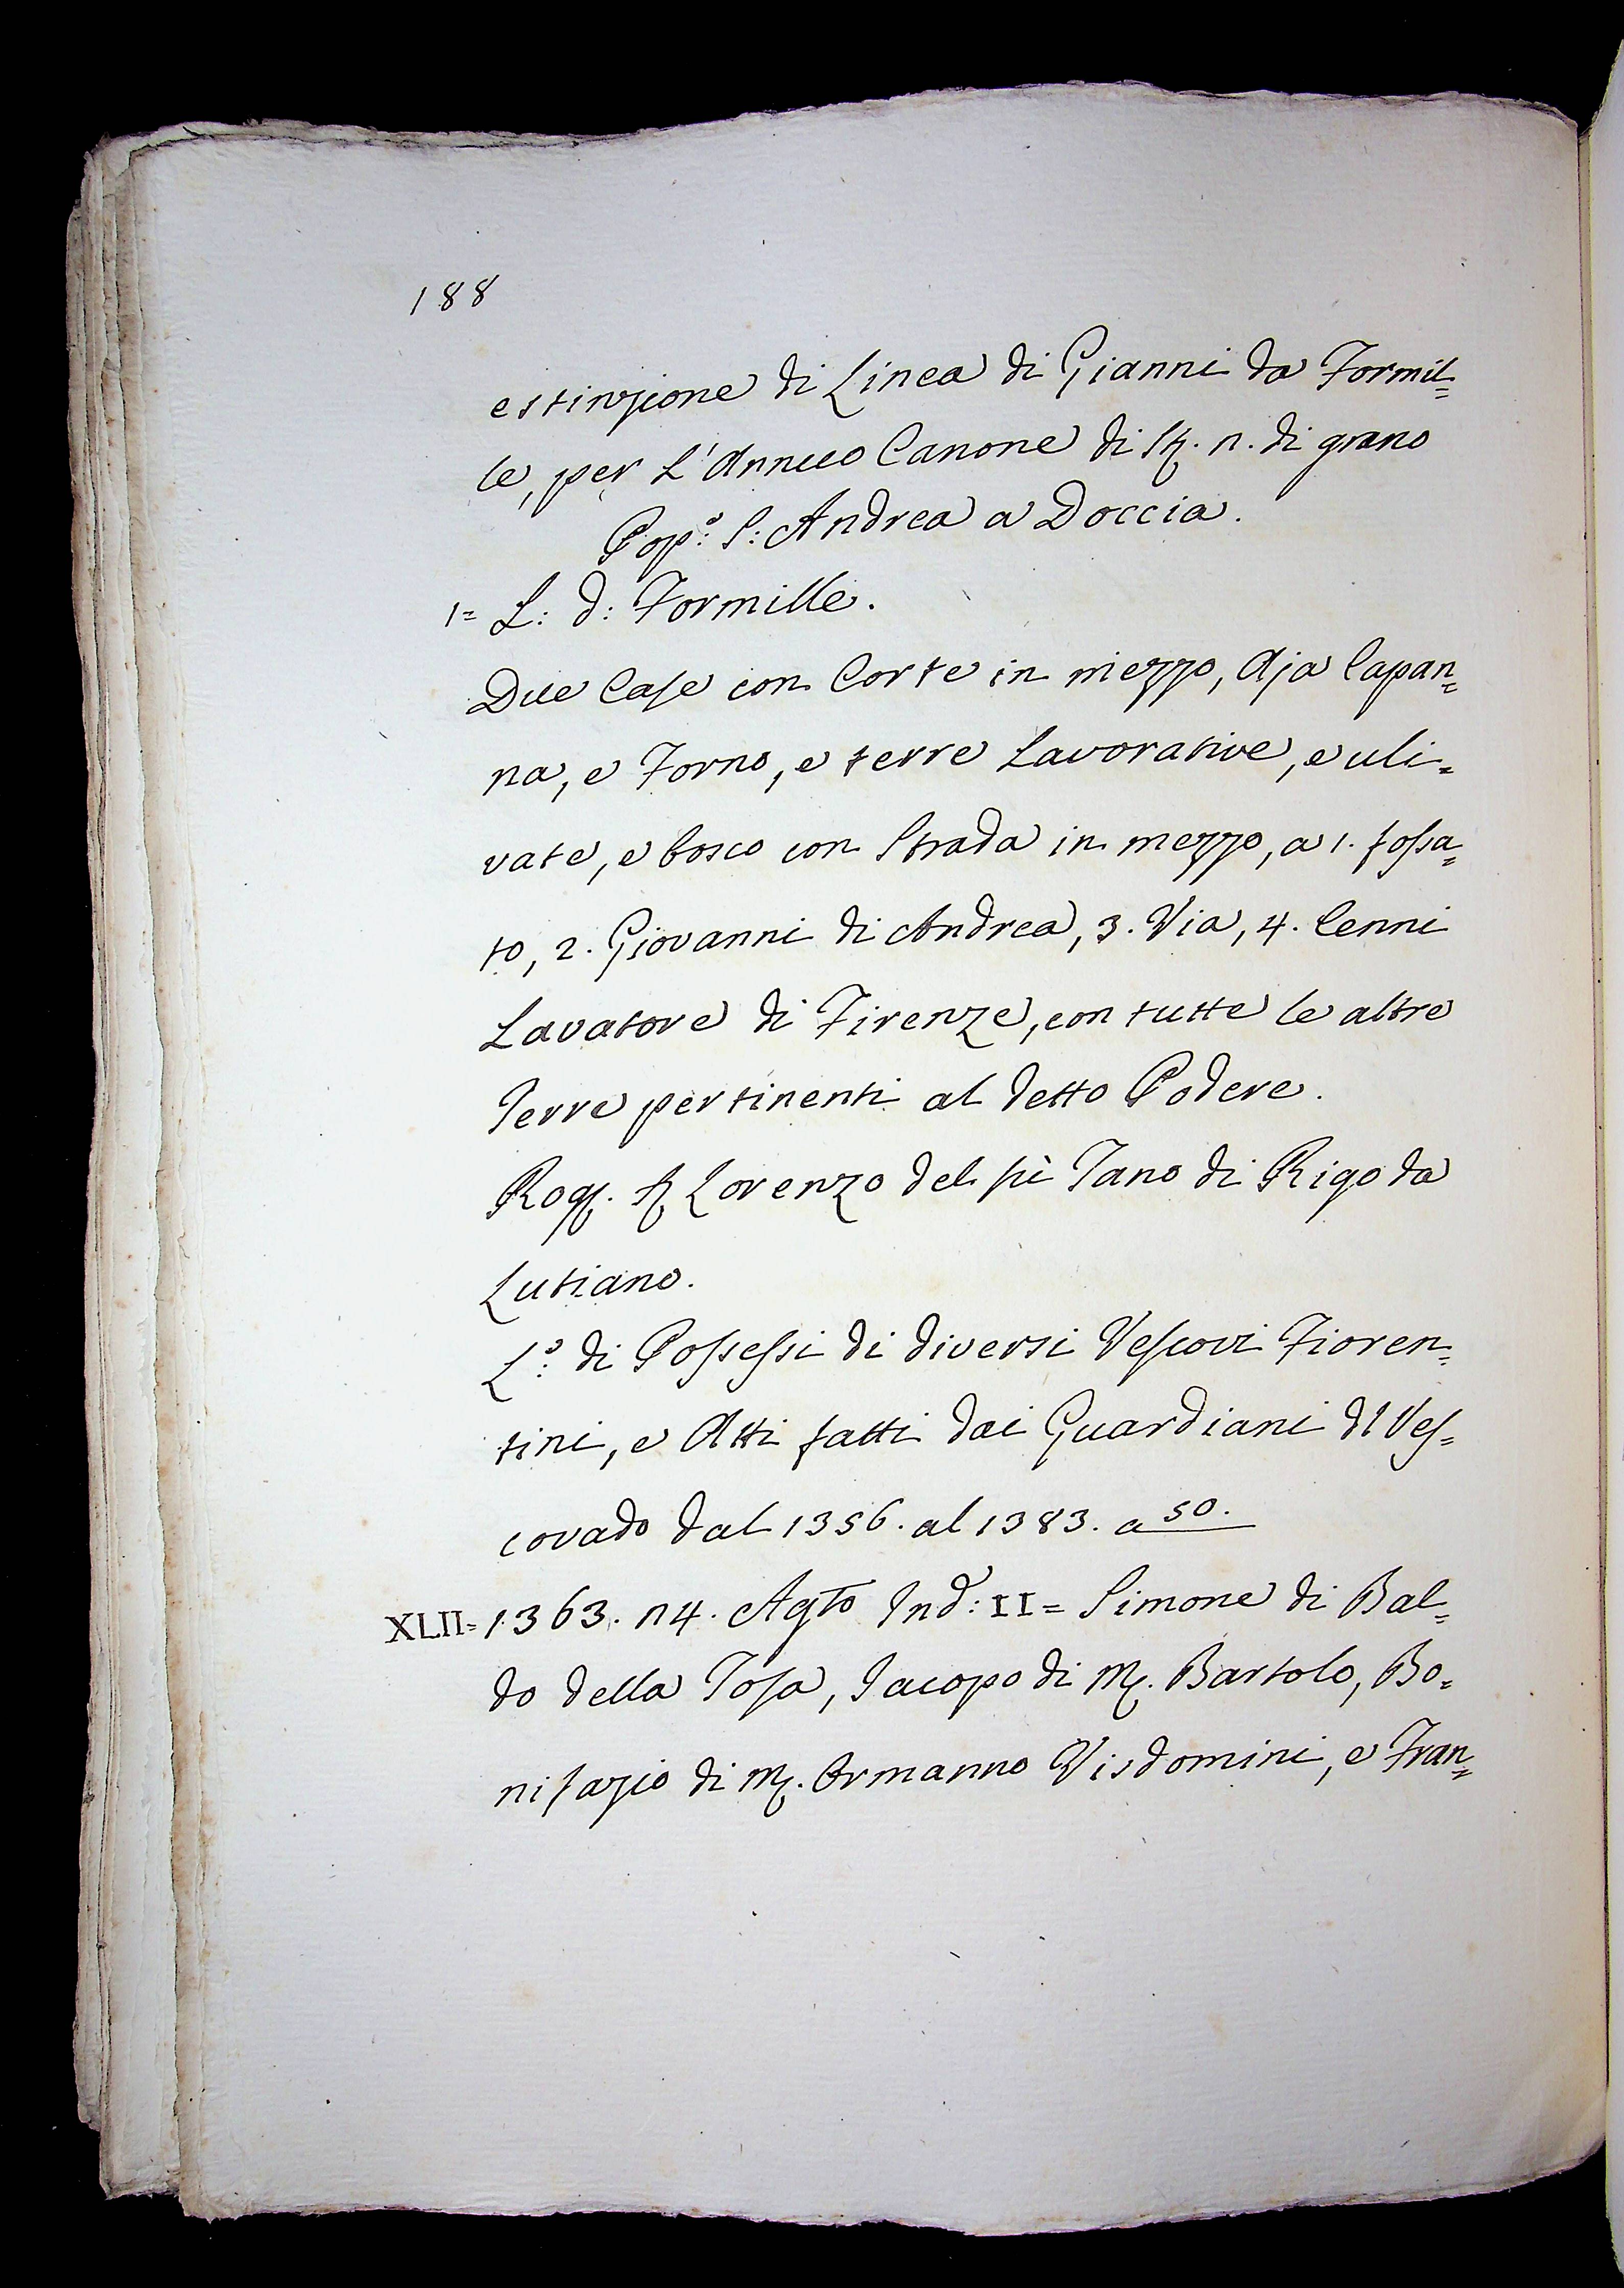 188
estinzione di Linea di Gianni da Formil=
le, per L'Annuo Canone di St. n. di grano
Pop.º S: Andrea a Doccia.
1= L: d: Formille.
Due Case con Corte in mezzo, Aja Capan=
na, e Forno, e terre Lavorative, e uli=
vate, e bosco con Strada in mezzo, a 1. fossa=
to, 2. Giovanni di Andrea, 3. Via, 4. Cenni
Lavatore di Firenze, con tutte le altre
Terre pertinenti al detto Podere.
Rog. Lorenzo del fù Tano di Rigo da
Lutiano.
L.º di Possessi di diversi Vescovi Fioren=
tini, e Atti fatti dai Guardiani dl Ves=
covado dal 1356. al 1383. a 50.
XLII= 1363. n4. Agto Ind: II= Simone di Bal=
do della Tosa, Jacopo di M. Bartolo, Bo=
nifazio di M. Ormanno Visdomini, e Fran=